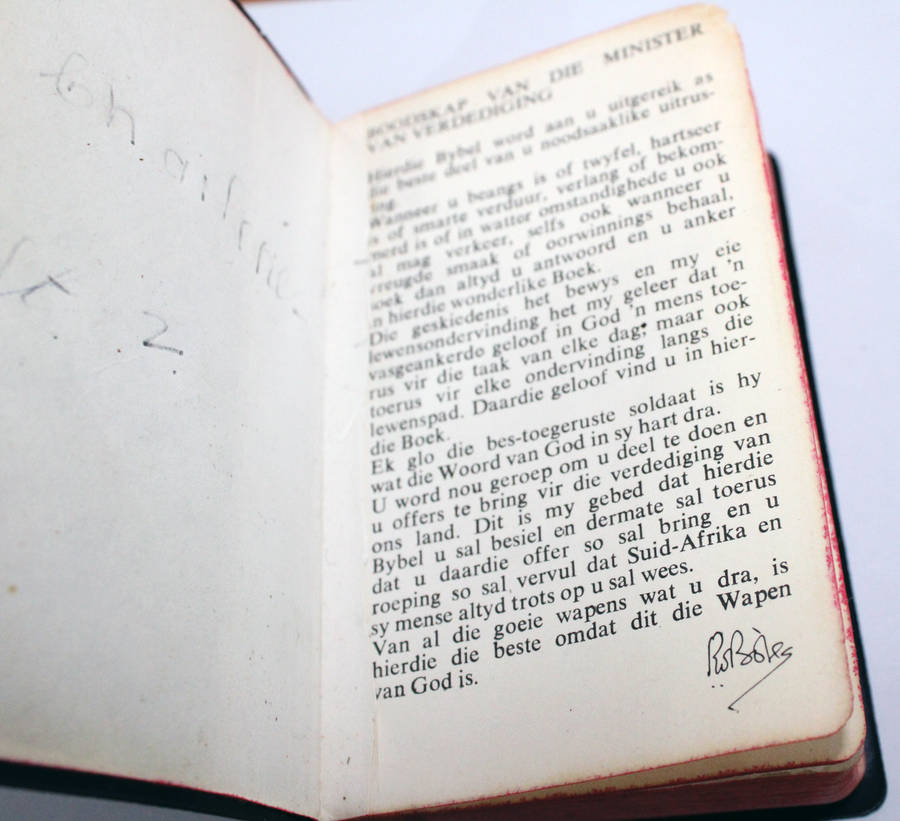 2.
BOODSKAP VAN DIE MINISTER
VAN VERDEDIGING
Hierdie Bybel word aan u uitgereik as
die beste deel van u noodsaaklike uitrus-
ing.
Wanneer u beangs is of twyfel, hartseer
is of smarte verduur, verlang of bekom-
merd is of in watter omstandighede u ook
al mag verkeer, selfs ook wanneer u
vreugde smaak of oorwinnings behaal,
soek dan altyd u antwoord en u anker
in hierdie wonderlike Boek.
Die geskiedenis het bewys en my eie
lewensondervinding het my geleer dat 'n
vasgeankerde geloof in God 'n mens toe-
rus vir die taak van elke dag; maar ook
toerus vir elke ondervinding langs die
lewenspad. Daardie geloof vind u in hier-
die Boek.
Ek glo die bes-toegeruste soldaat is hy
wat die Woord van God in sy hart dra.
U word nou geroep om u deel te doen en
u offers te bring vir die verdediging van
ons land. Dit is my gebed dat hierdie
Bybel u sal besiel en dermate sal toerus
dat u daardie offer so sal bring en u
roeping so sal vervul dat Suid-Afrika en
sy mense altyd trots op u sal wees.
Van al die goeie wapens wat u dra, is
hierdie die beste omdat dit die Wapen
van God is.